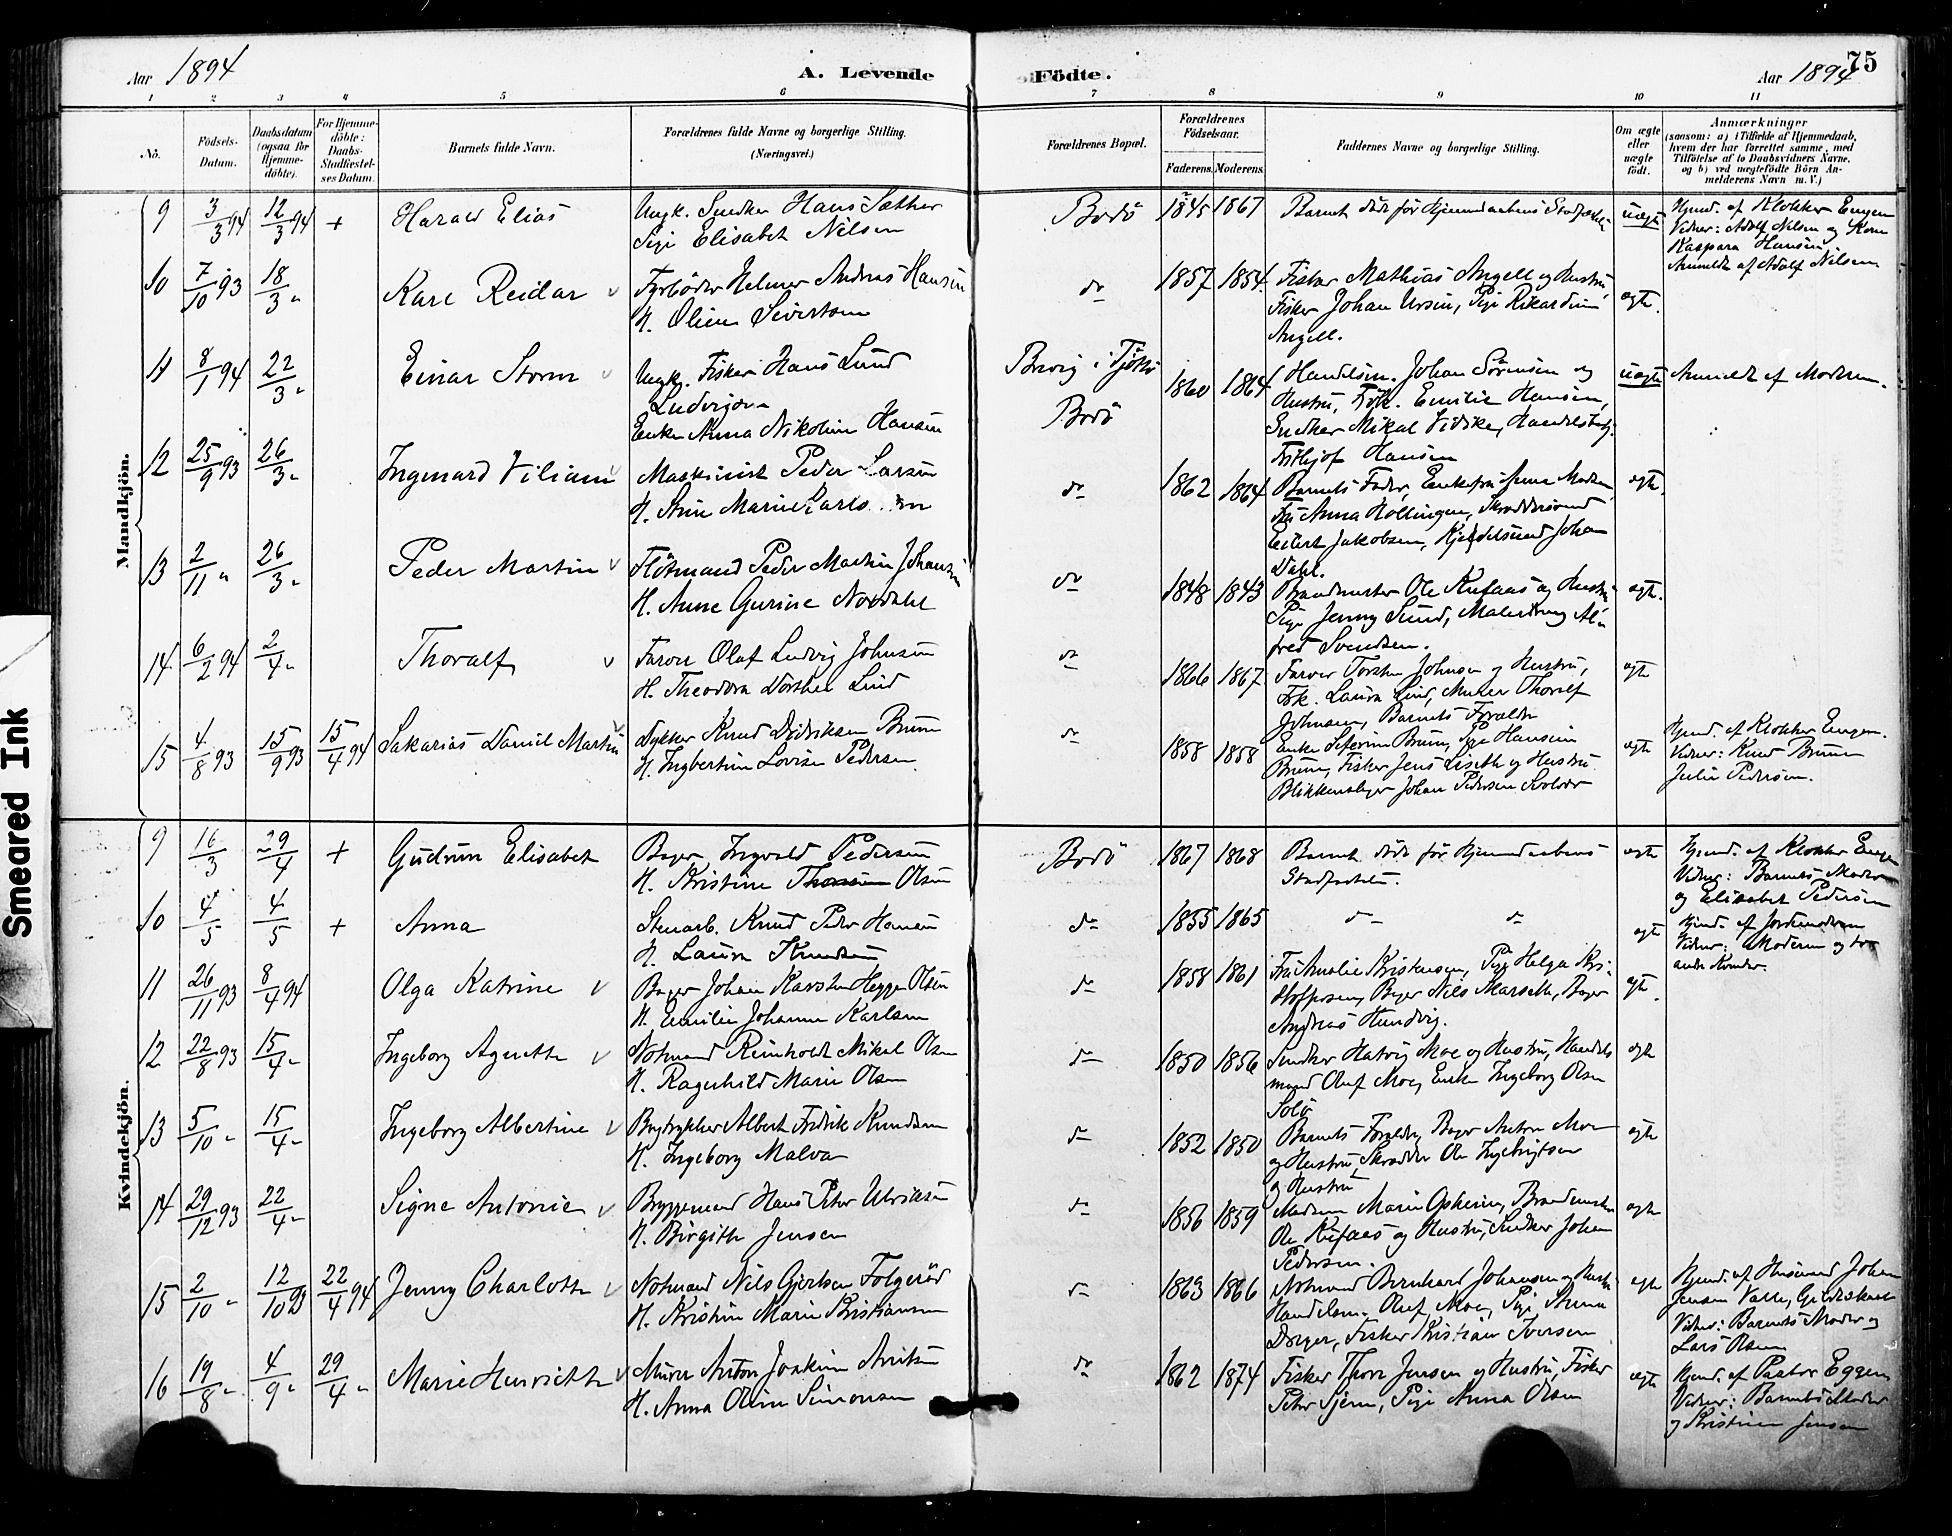 Aar 1894
A. Levende
Födte.
Aar 1894
75
1 2 3 4 5 6 7 8 9 10 11
No.
Födsels-Datum.
Daabsdatum (ogsaa for Hjemme-döbte).
For Hjemme-döbte: Daabs-Stadfæstel-ses Datum.
Barnets fulde Navn.
Forældrenes fulde Navne og borgerlige Stilling. (Næringsvei.)
Forældrenes Bopæl.
Forældrenes Födselsaar.
Faderens. Moderens.
Faddernes Navne og borgerlige Stilling.
Om ægte eller uægte födt.
Anmærkninger
(saasom: a) i Tilfælde af Hjemmedaab, hvem der har forrettet samme, med Tilföielse af to Daabsvidners Navne, og b) ved uægtefödte Börn An-melderens Navn m. V.)
Mandkjön.
9 3/3 94 12/3 94 + Harald Elias
Ungk. Snedker Hans Sæther
Pige Elisabet Nilsen
Bodö 1845 1867
Barnet döde för Hjemmedaabens
uægte
Hjemd. af Klokker Engen
Vidner: Adolf Nilsen og Kone
Kaspara Hansen
Anmeldt af Adolf Nilsen
10 7/10 93 18/3 " Karl Reidar
Fyrböder Helmer Andreas Hansen
H. Oline Sivertsen
do 1857 1854
Fisker Mathias Angell og Hustru,
Fisker Johan Ursin, Pige Rikardine
Angell.
ægte.
11 8/1 94 22/3 " Einar Storm
Ungk. Fisker Hans Lund
Ludvigsen
Enke Anna Nikoline Hansen
Brevig i Tjötta
Bodö
1860 1864
Handelsm. Johan Sörensen og
Hustru, Frk. Emilie Hansen,
Snedker Mikal Vidike, Handelsbetj.
Frithjof Hansen
uægte
Anmeldt af Moderen.
12 25/9 93 26/3 " Ingmard Viliam
Maskinist Peder Larsen
H. Ane Marie
do 1862 1864
Barnets Fader, Enkefru Anna Madsen
Fru Anna Hollingen, Skræddersvend
Eilert Jakobsen, Johan
Dahl.
ægte.
13 2/11 " 26/3 " Peder Martin
Flötmand Peder Martin Johansen
H. Anne Gurine Nordahl
do 1848 1843
Brandmester Ole Rufaas og Hustru
Pige Jenny Lund, Al-
fred Svendsen.
ægte.
14 6/2 94 2/4 " Thoralf
Farver Olaf Ludvig Johnsen
H. Theodora Dorthea Lind
do 1866 1867
Farver Torsten Johnsen og Hustru,
Frk. Laura Lind, Murer Thoralf
Johnsen, Barnets Forældre
ægte
15 4/8 93 15/9 93 15/4 94 Sakarias Daniel Martin
Dykker Knud Didriksen Bruun
H. Ingbertine Lovise Pedersen
do 1858 1858
Enke Seferine Bruun, Pige Hansine
Bruun, Fisker Jens Liseth og Hustru
Blikkenslager Johan Pedersen
ægte
Hjemd. af Klokker Engen.
Vidner: Knud Bruun
Julie Pedersen.
Kvindekjön.
9 16/3 29/4 + Gudrun Elisabet
Bager Ingvald Pedersen
H. Kristine Olsen
Bodö 1867 1868
Barnet döde för Hjemmedaabens
Stadfæstelse.
ægte
Hjemd. af Klokker Engen
Vidner: Barnets Moder
og Elisabet Pedersen
10 4/5 4/5 + Anna
Stenarb. Knud Peder Hansen
H. Laura Knudsen
do 1855 1865
do do
ægte
Hjemd. af Jordemoderen
Vidner: Moderen og to
andre Kvinder.
11 26/11 93 8/4 94 Olga Katrine
Bager Johan Karsten Hegge Olsen
H. Emilie Johanne Karlsen
do 1858 1861
Fru Amalie Kristensen, Pige Helga Kri-
stoffersen, Bager Nils Marseth, Bager
Andreas Hundvig.
ægte.
12 22/8 93 15/4 " Ingeborg Agnethe
Notmand Reinholdt Mikal Olsen
H. Ragnhild Marie Olsen
do 1850 1856
Snedker Hatvig Moe og Hustru, Handels
mand Oluf Moe, Enke Ingeborg Olsen
Solö
ægte
13 5/10 " 15/4 " Ingeborg Albertine
Bogtrykker Albert Fredrik Knudsen
H. Ingeborg Malva
do 1852 1850
Barnets Forældre, Bager Anton Moe
og Hustru, Skrædder Ole Ingebrigtsen
og Hustru
ægte
14 29/12 93 22/4 " Signe Antonie
Bryggemand Hans Peter Ulriksen
H. Birgithe Jensen
do 1856 1859
Madam Marie Opheim, Brandmester
Ole Rufaas og Hustru, Snedker Johan
Pedersen.
ægte
15 2/10 " 12/10 93 22/4 94 Jenny Charlotte
Notmand Nils Gjertsen Folgeröd
H. Kristine Marie Kristiansen
do 1863 1866
Notmand Bernhard Johansen og Hustru
Handelsm. Oluf Moe, Pige Anna
Dreyer, Fisker Kristian Iversen
ægte
Hjemd. af Husmand Johan
Jensen Valle, Gildeskaal
Vidner: Barnets Moder og
Lars Olsen
16 19/8 " 4/9 " 29/4 " Marie Henriette
Murer Anton Joakim Arntsen
H. Anna Oline Simonsen
do 1862 1874
Fisker Thore Jensen og Hustru, Fisker
Peter Sjern, Pige Anna Olsen
ægte
Hjemd. af Pastor Eggen
Vidner: Barnets Moder
og Kristine Jensen
Smeared Ink